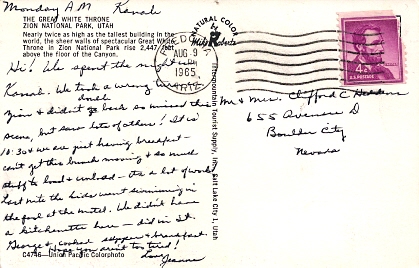 Monday A.M Kanab
THE GREAT WHITE THRONE
ZION NATIONAL PARK, UTAH
Nearly twice as high as the tallest building in the
world, the sheer walls of spectacular Great White
Throne in Zion National Park rise 2,447 feet
above the floor of the Canyon.
Hi! We spent the night in
Kanab. We took a wrong turn
Zion & didn't go back so missed this
scene, but saw lots of others! It is
10:30 & we are just having breakfast -
can't get this bunch moving & so much
stuff to load & unload - It's a lot of work
Last nite the kids went swimming in
the pool at the motel. We didn't have
a kitchenette here - did in St.
George & cooked supper & breakfast.
Hope you aren't too tired!
Love
Jeanne
C4746—Union Pacific Colorphoto
NATURAL COLOR
Mike Roberts
AUG 9
1965
Intermountain Tourist Supply, Inc., Salt Lake City 1, Utah
4¢
U.S. POSTAGE
Mr & Mrs. Clifford C
655 Avenue D
Boulder City
Nevada